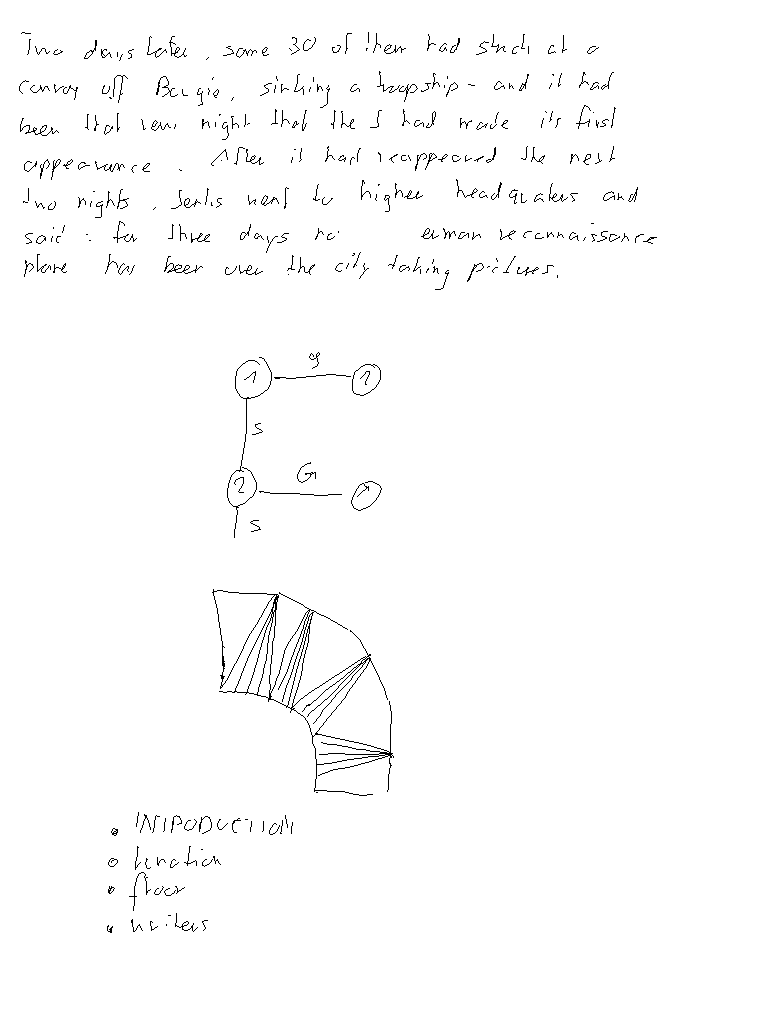 Two days later, some 30 of them had struck at a
convoy off Bougie, sinking a troopship - and it had
been that very night that the J had made its first
appearance. After it had reappeared the next
two nights, Jentis went to higher headquaters and
said: for three days no erman reconnaissance
plane has been over the city taking pictures.
1 g 1
s
2 G
s
• INTRODUCTION
• 
• floor
• writers